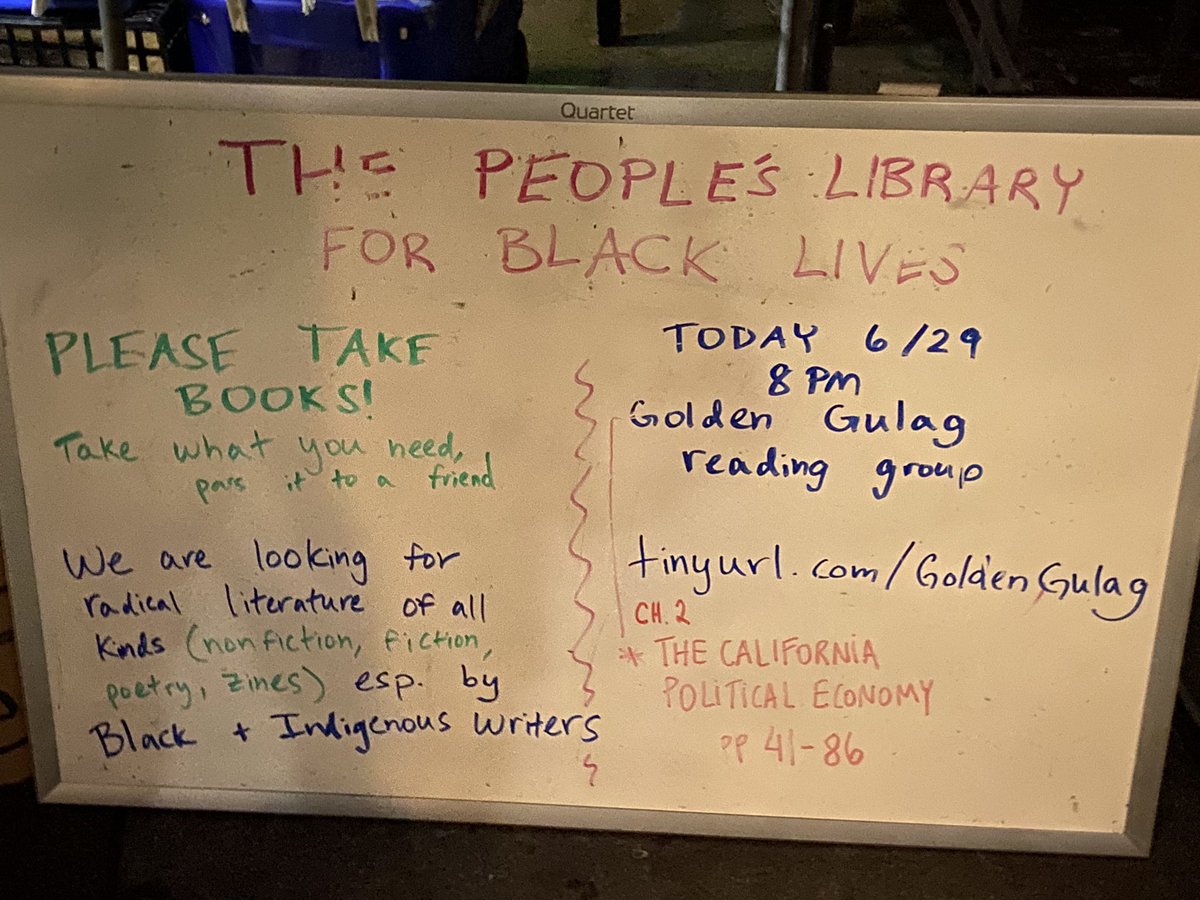 Quartet
THE PEOPLE'S LIBRARY
FOR BLACK LIVES
PLEASE TAKE
BOOKS!
Take what you need,
pass it to a friend
We are looking for
radical literature of all
kinds (nonfiction, fiction,
poetry, zines) esp. by
Black + Indigenous writers
TODAY 6/29
8 PM
Golden Gulag
reading group
tinyurl.com/GoldenGulag
CH. 2
* THE CALIFORNIA
POLITICAL ECONOMY
pp 41-86